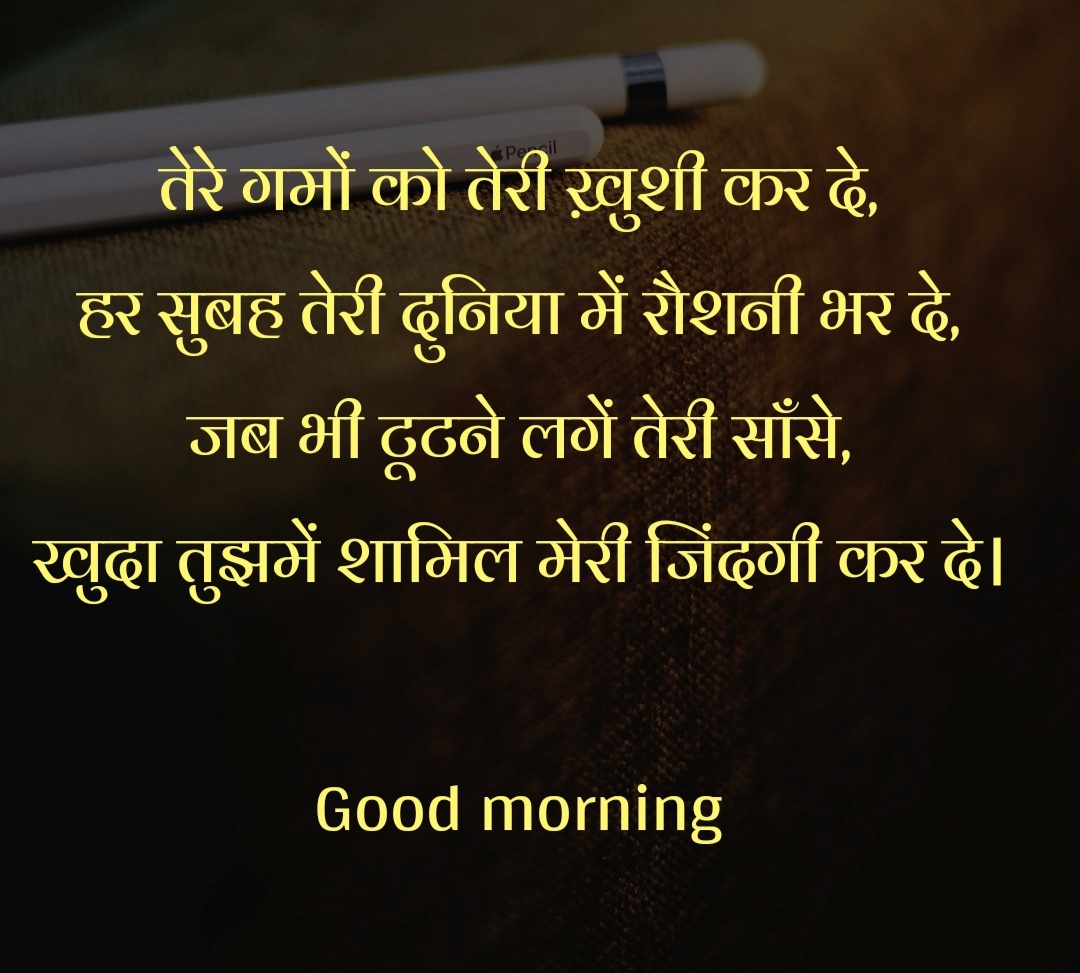 Pencil
तेरे गमों को तेरी ख़ुशी कर दे,
हर सुबह तेरी दुनिया में रौशनी भर दे,
जब भी टूटने लगें तेरी साँसे,
खुदा तुझमें शामिल मेरी जिंदगी कर दे।
Good morning